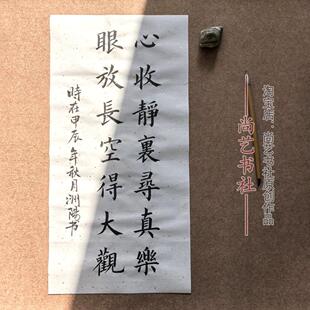 心收靜裏尋真樂
眼放長空得大觀
時在甲辰年秋月洲陽书
淘宝店：尚艺书社原创作品
尚艺书社